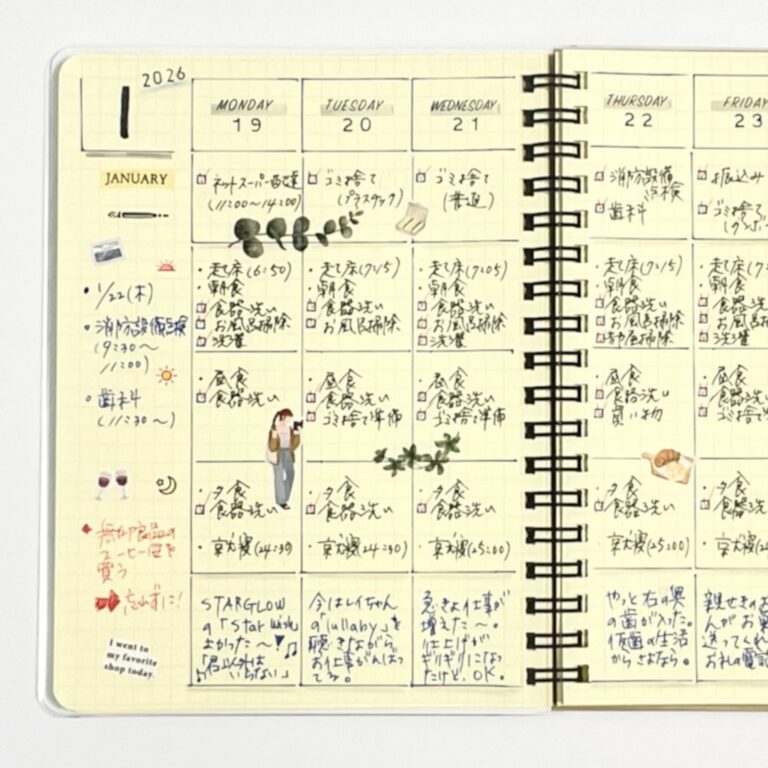 1
2026
JANUARY
・1/22(木)
・消防設備点検
(9:30〜
11:00)
・歯科
(11:30〜)
無印良品の
コーヒー豆を
買う
忘れずに!
I went to
my favorite
shop today.
MONDAY
19
ネットスーパー配達
(11:00〜14:00)
・起床(6:50)
・朝食
食器洗い
お風呂掃除
洗濯
・昼食
食器洗い
・夕食
食器洗い
・就寝(24:30)
STARGLOW
の「Star Wish」
よかった〜!
「君以外は
いらない」
TUESDAY
20
ゴミ捨て
(プラスチック)
・起床(7:15)
・朝食
食器洗い
お風呂掃除
・昼食
食器洗い
ゴミ捨て準備
・夕食
食器洗い
・就寝(24:30)
今はレイちゃん
の「lullaby」を
聴きながら
お仕事がんばっ
てる。
WEDNESDAY
21
ゴミ捨て
(普通)
・起床(7:05)
・朝食
食器洗い
お風呂掃除
洗濯
・昼食
食器洗い
ゴミ捨て準備
・夕食
食器洗い
・就寝(25:00)
急きょ仕事が
増えた〜。
仕上げが
ギリギリになっ
たけど、OK。
THURSDAY
22
消防設備
点検
歯科
・起床(7:15)
・朝食
食器洗い
お風呂掃除
部屋掃除
・昼食
食器洗い
買い物
・夕食
食器洗い
・就寝(25:00)
やっと右の奥
の歯が入った。
仮歯の生活
からさよなら。
FRIDAY
23
お振込み
ゴミ捨て
(ダンボー
・起床(7:
・朝食
食器洗
お風呂
洗濯
・昼食
食器洗
ゴミ捨て
・夕食
食器洗
・就寝(2
親せきのお
んがお菓
送ってくれ
お礼の電話